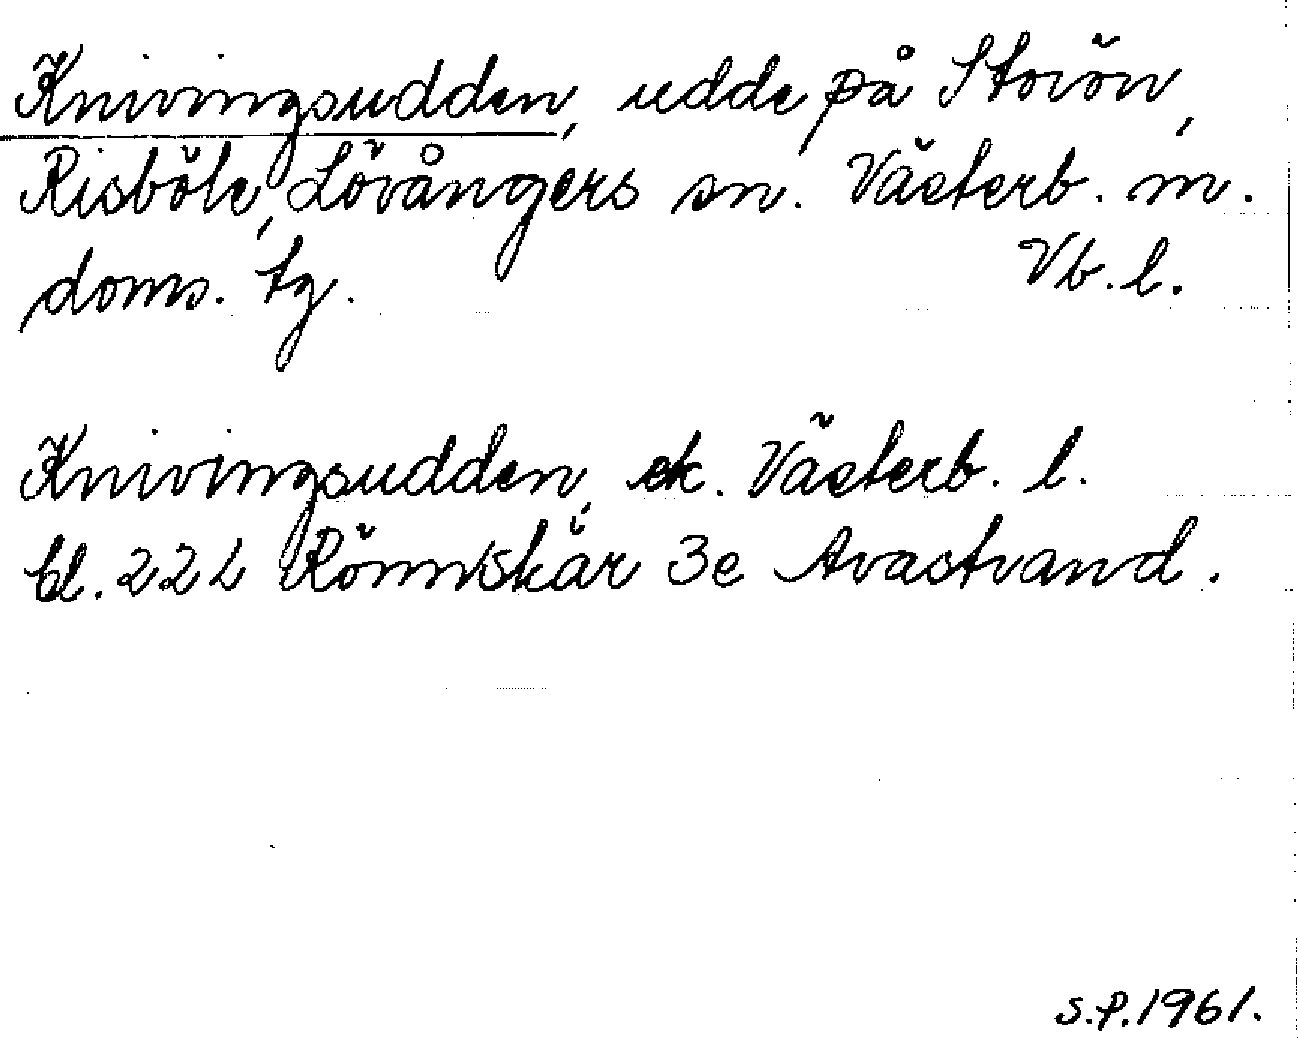 Knivingsudden, udde på Storön,
Risböle, Lövångers sn. Västerb. m.
doms. tg. Vb. l.
Knivingsudden, ek. Västerb. l.
bl. 22 L Rönnskär 3e Avastrand.
S.P. 1961.